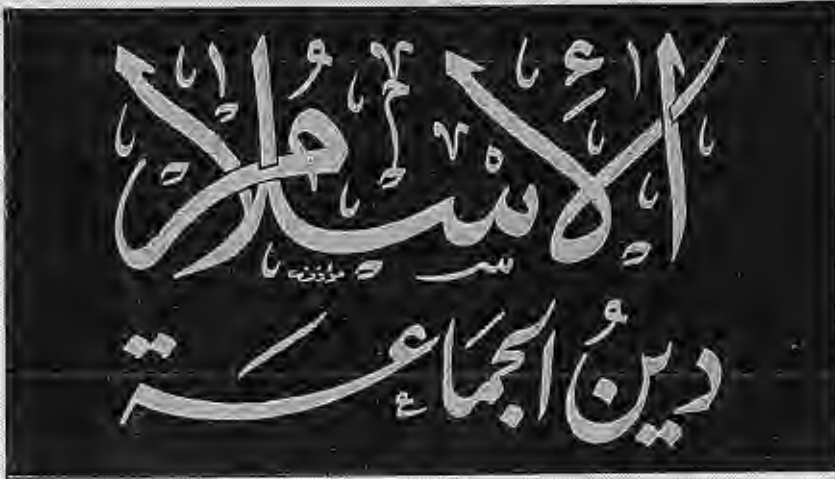 الإِسْلَامُ
دينُ الجمَاعة